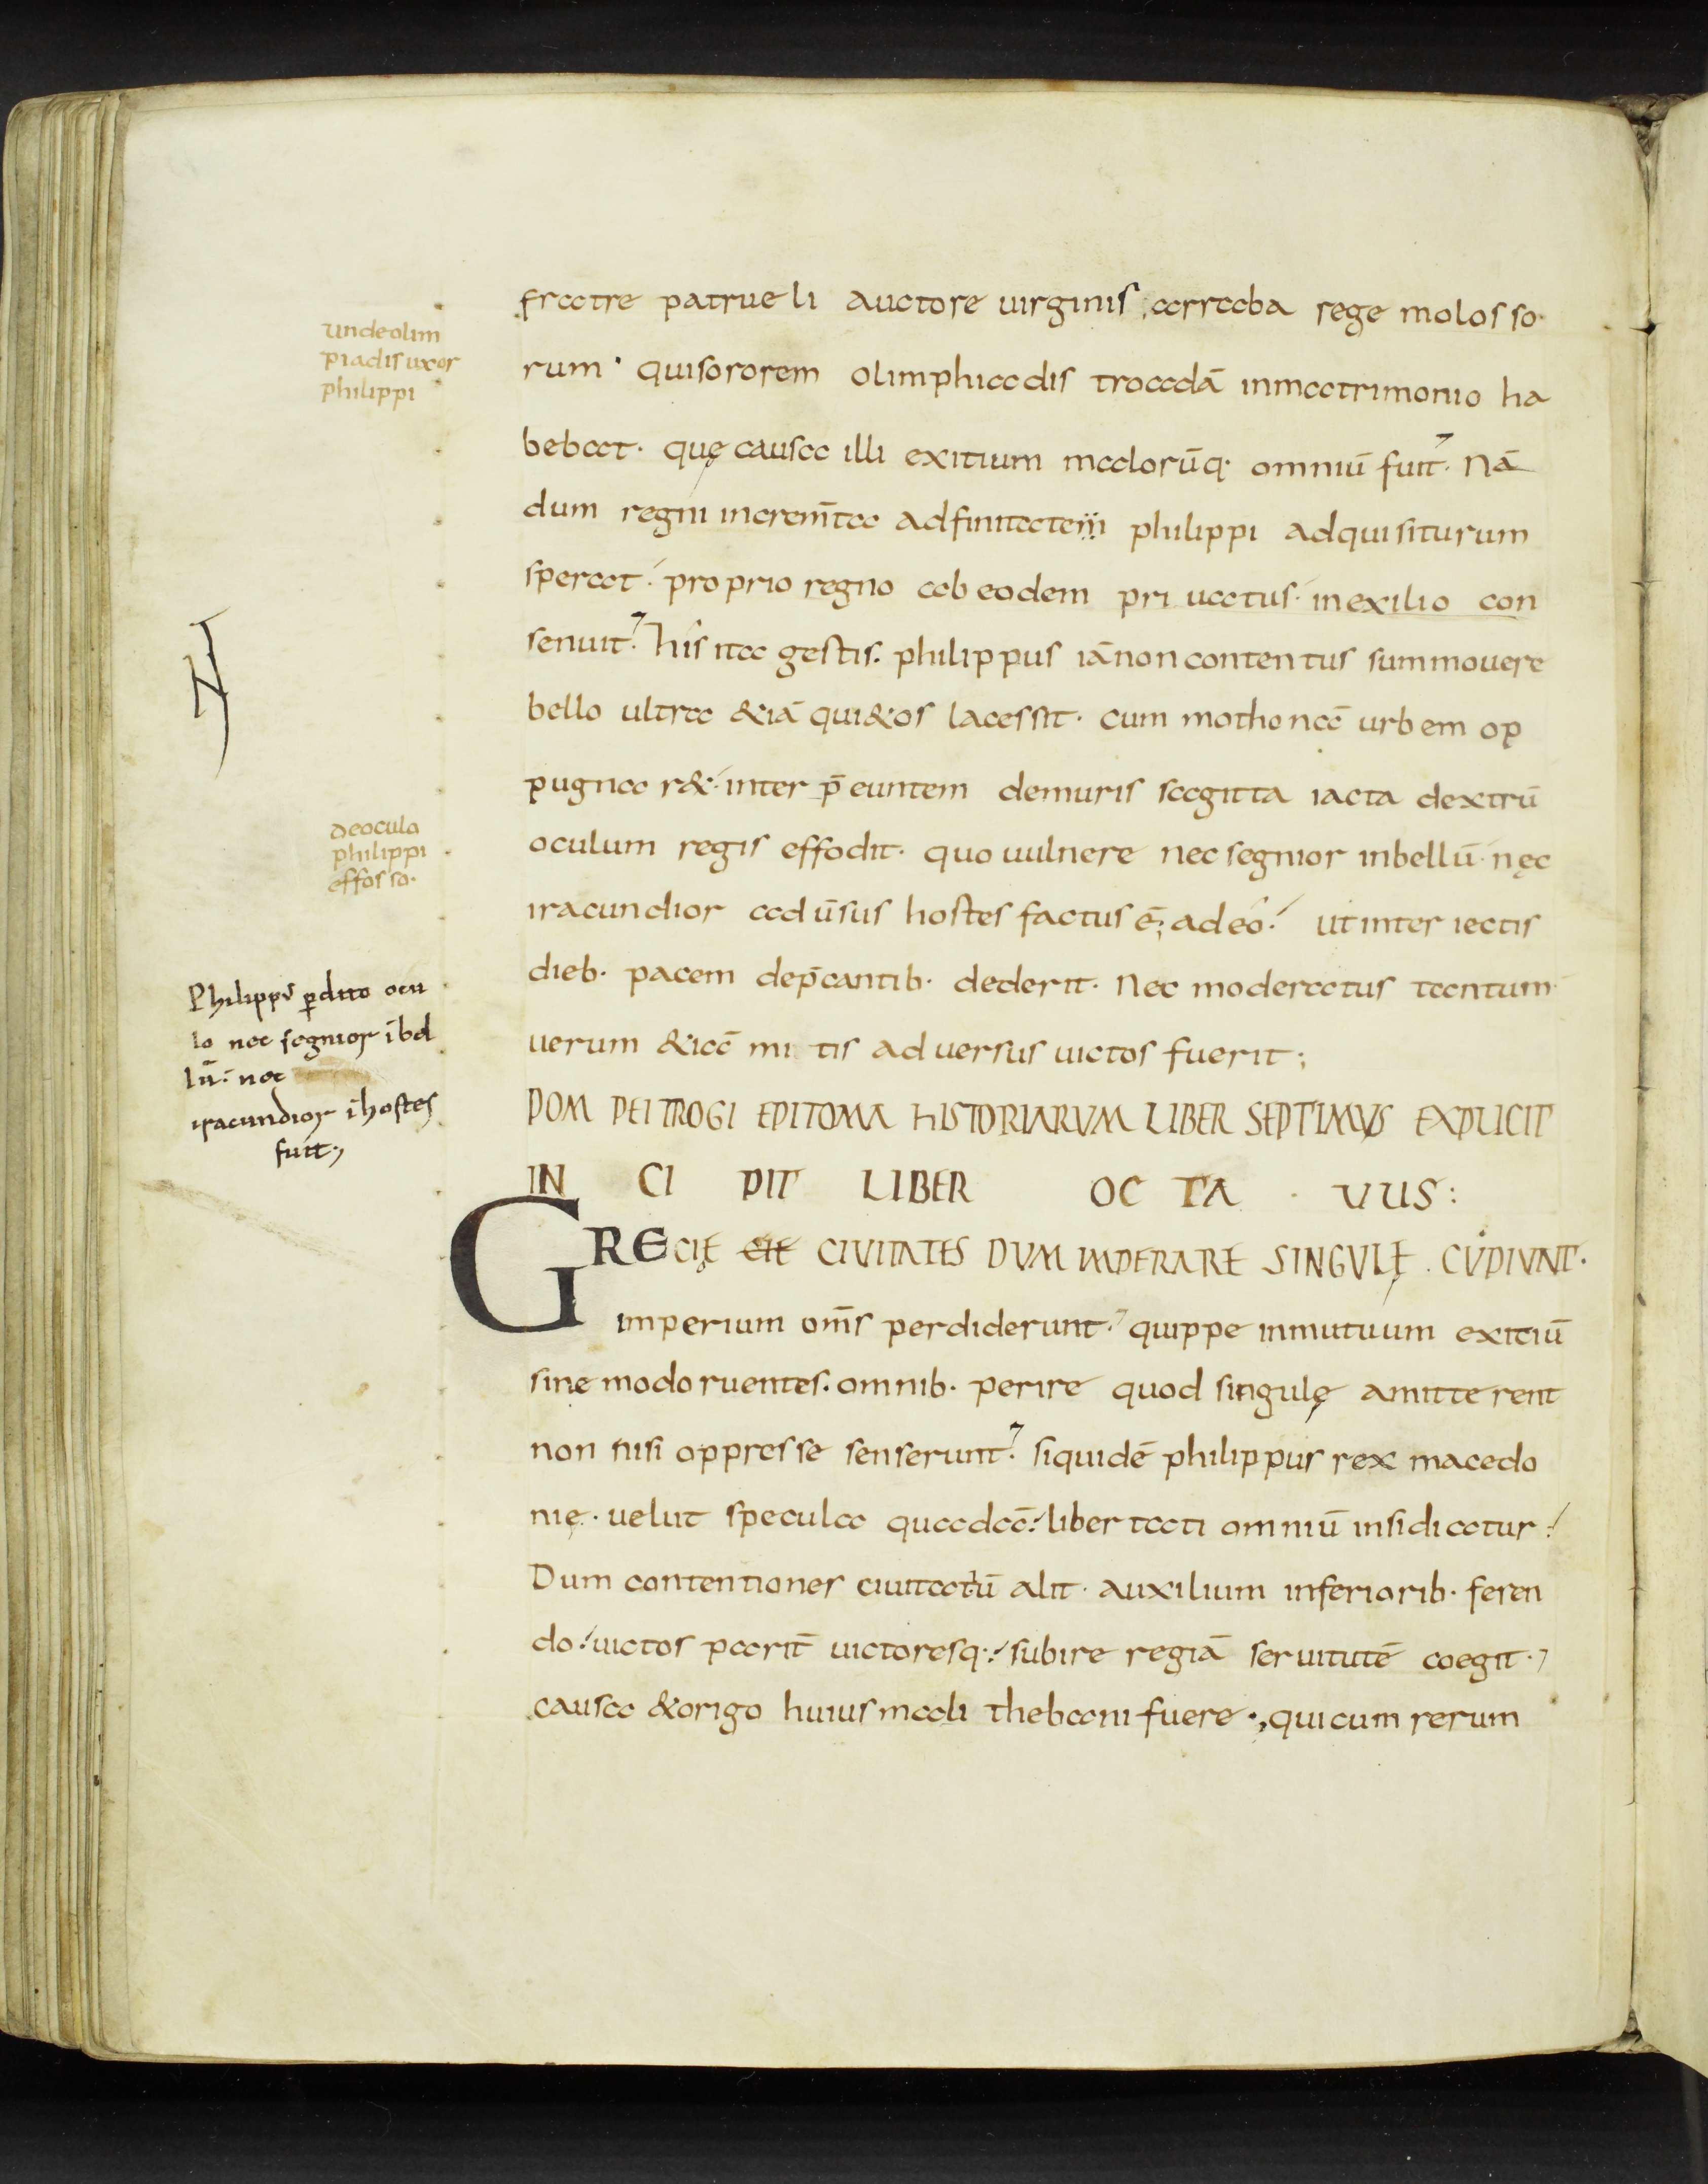 undeolim
piadis uxor
philippi
fratre patrueli auctore uirginis; arraba rege molosso·
rum· qui sororem olimphiadis troadā inmatrimonio ha
bebat· quę causa illi exitium malorūq· omniū fuit· Nā
dum regni increm̄ta adfinitatem philippi adquisiturum
sperat· proprio regno ab eodem priuatus· inexilio con
senuit· his ita gestis· philippus iā non contentus summouere
bello ultra &iā qui&os lacessit· cum mothonā urbem op
pugna r&· inter p̄euntem demuris sagitta iacta dextrū
deoculo
philippi
effosso·
oculum regis effodit· quo uulnere nec segnior inbellū· nęc
iracundior adūsus hostes factus ē; adeo· ut inter iectis
dieb· pacem dep̄cantib· dederit· Nec moderatus tantum·
Philippus pdito ocu
lo nec segnior ībel
lū· nec
iracundior ī hostes
fuit,
uerum &iā mitis aduersus uictos fuerit;
POMPEI TROGI EPITOMA HISTORIARUM LIBER SEPTIMUS EXPLICIT
IN CI PIT LIBER OC TA · UUS:
GRECIĘ CIE CIVITATES DVM IMPERARE SINGVLĘ · CUPIVNT·
imperium om̄s perdiderunt· quippe inmutuum exitiū
sine modo ruentes· omnib· perire quod singulę amitterent
non nisi oppresse senserunt· siquidē philippus rex macedo
nię· uelut specula quadā· libertati omniū insidiatur·
Dum contentiones ciuitatū alit· auxilium inferiorib· feren
do· uictos parit̄ uictoresq· subire regiā seruitutē coegit·
causa &origo huius mali thebani fuere·, quicum rerum